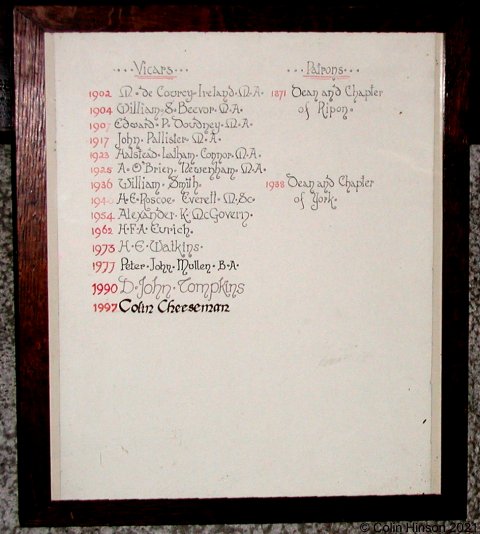 · · · · Vicars · · · ·    · · Patrons · · ·
1902 M · de Courcy · Ireland · M · A ·    1871 Dean and Chapter
1904 William · S · Beevor · M · A ·    of Ripon ·
1907 Edward · P · Doudney · M · A ·
1917 John · Pallister · M · A ·
1923 Halstead · Ledham · Connor · M · A ·
1925 A · O'Brien · Newenham · M · A ·
1936 William · Smith ·    1938 Dean and Chapter
1940 A · E · Roscoe · Everett · M · Sc ·    of York ·
1954 Alexander · K · McGovern ·
1962 H · F · A · Eurich ·
1973 H · E · Watkins ·
1977 Peter · John · Mullen · B · A ·
1990 D · John · Tompkins
1997 Colin Cheeseman
© Colin Hinson 2021